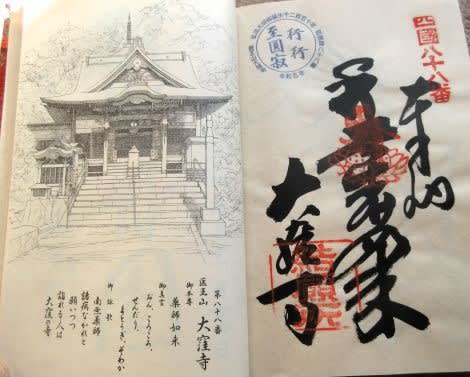 第八十八番
医王山 大窪寺
御本尊
薬師如来
御真言
おん、ころころ、
せんだり、
まとうぎ、そわか
御詠歌
南無薬師
諸病なかれと
願いつつ
詣れる人は
大窪の寺
四國八十八番
奉納
大窪寺
行行
至圓寂
令和五年